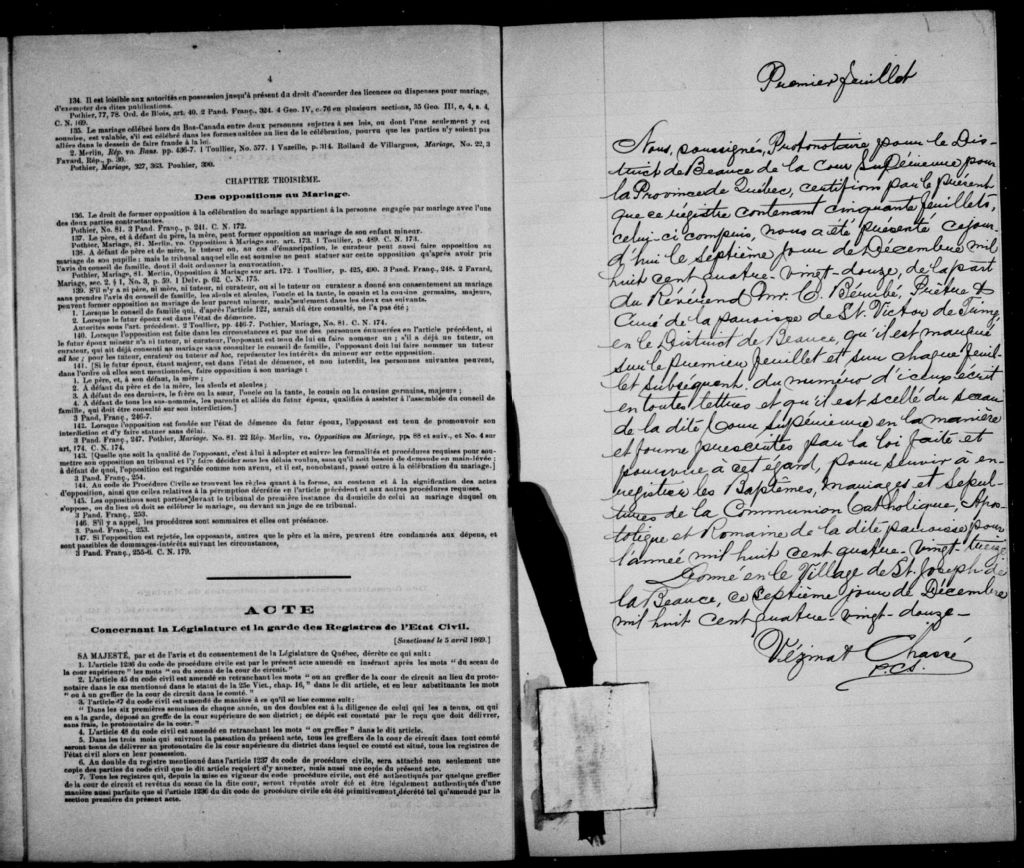 4
134. Il est loisible aux autorités en possession jusqu'à présent du droit d'accorder des licences ou dispenses pour mariage,
d'exempter des dites publications.
Pothier, 77, 78. Ord. de Blois, art. 40. 2 Pand. Franç., 324. 4 Geo. IV, c. 76 en plusieurs sections, 35 Geo. III, c, 4, s. 4,
C. N. 169.
135. Le mariage célébré hors du Bas-Canada entre deux personnes sujettes à ses lois, ou dont l'une seulement y est
soumise, est valable, s'il est célébré dans les formes usitées au lieu de la célébration, pourvu que les parties n'y soient pas
allées dans le dessein de faire fraude à la loi.
2. Merlin, Rép. vo. Bans. pp. 436-7. 1 Toullier, No. 577. 1 Vazeille, p. 314. Rolland de Villargues, Mariage, No. 22, 3
Favard, Rép., p. 30.
Pothier, Mariage, 327, 363. Pouhier, 390.
CHAPITRE TROISIÈME.
Des oppositions au Mariage.
136. Le droit de former opposition à la célébration du mariage appartient à la personne engagée par mariage avec l'une
des deux parties contractantes.
Pothier, No. 81. 3 Pand. Franç., p. 241. C. N. 172.
137. Le père, et à défaut du père, la mère, peut former opposition au mariage de son enfant mineur.
Pothier, Mariage, 81. Merlin, vo. Opposition à Mariage sur. art. 173. 1 Toullier, p. 489. C. N. 173.
138. A défaut de père et de mère, le tuteur ou, au cas d'émancipation, le curateur peut aussi faire opposition au
mariage de son pupille : mais le tribunal auquel elle est soumise ne peut statuer sur cette opposition qu'après avoir pris
l'avis du conseil de famille, dont il doit ordonner la convocation.
Pothier, Mariage, 81. Merlin, Opposition à Mariage sur art. 172. 1 Toullier, p. 425, 490. 3 Pand. Franç., 248. 2 Favard,
Mariage, sec. 2, § 1, No. 3, p. 59. 1 Delv. p. 62. C. N. 175.
139. S'il n'y a ni père, ni mère, ni tuteur, ni curateur, ou si le tuteur ou curateur a donné son consentement au mariage
sans prendre l'avis du conseil de famille, les aïeuls et aïeules, l'oncle et la tante, le cousin et la cousine germains, majeurs,
peuvent former opposition au mariage de leur parent mineur, mais seulement dans les deux cas suivants.
1. Lorsque le conseil de famille qui, d'après l'article 122, aurait dû être consulté, ne l'a pas été ;
2. Lorsque le futur époux est dans l'état de démence.
Autorités sous l'art. précédent. 2 Toullier, pp. 446-7. Pothier, Mariage, No. 81. C. N. 174.
140. Lorsque l'opposition est faite dans les circonstances et par une des personnes énumérées en l'article précédent, si
le futur époux mineur n'a ni tuteur, ni curateur, l'opposant est tenu de lui en faire nommer un ; s'il a déjà un tuteur, ou
curateur, qui ait déjà consenti au mariage sans consulter le conseil de famille, l'opposant doit lui faire nommer un tuteur
ad hoc ; pour les tuteur, curateur ou tuteur ad hoc, représenter les intérêts du mineur sur cette opposition.
141. [Si le futur époux, étant majeur, est dans l'état de démence, et non interdit, les personnes suivantes peuvent,
dans l'ordre où elles sont mentionnées, faire opposition à son mariage :
1. Le père, et, à son défaut, la mère ;
2. A défaut du père et de la mère, les aïeuls et aïeules ;
3. A défaut de ces derniers, le frère ou la sœur, l'oncle ou la tante, le cousin ou la cousine germains, majeurs ;
4. A défaut de tous les sus-nommés, les parents et alliés du futur époux, qualifiés à assister à l'assemblée du conseil de
famille, qui doit être consulté sur son interdiction.]
3 Pand. Franç., 246-7.
142. Lorsque l'opposition est fondée sur l'état de démence du futur époux, l'opposant est tenu de promouvoir son
interdiction et d'y faire statuer sans délai.
3 Pand. Franç., 247. Pothier, Mariage. No. 81. 22 Rép. Merlin, vo. Opposition au Mariage, pp. 88 et suiv., et No. 4 sur
art, 174. C. N. 174.
143. [Quelle que soit la qualité de l'opposant, c'est à lui à adopter et suivre les formalités et procédures requises pour sou-
mettre son opposition au tribunal et l'y faire décider sous les délais voulus, sans qu'il soit besoin de demande en main-levée ;
à défaut de quoi, l'opposition est regardée comme non avenue, et il est, nonobstant, passé outre à la célébration du mariage.]
3 Pand. Franç., 254.
144. Au code de Procédure Civile se trouvent les règles quant à la forme, au contenu et à la signification des actes
d'opposition, ainsi que celles relatives à la péremption décrétée en l'article précédent et aux autres procédures requises.
145. Les oppositions sont portées devant le tribunal de première instance du domicile de celui au mariage duquel on
s'oppose, ou du lieu où doit se célébrer le mariage, ou devant un juge de ce tribunal.
3 Pand. Franç., 253.
146. S'il y a appel, les procédures sont sommaires et elles ont préséance.
3. Pand. Franç., 253.
147. Si l'opposition est rejetée, les opposants, autres que le père et la mère, peuvent être condamnés aux dépens, et
sont passibles de dommages-intérêts suivant les circonstances,
3 Pand. Franç., 255-6. C. N. 179.
ACTE
Concernant la Législature et la garde des Registres de l'Etat Civil.
[Sanctionné le 5 avril 1869.]
SA MAJESTÉ, par et de l'avis et du consentement de la Législature de Québec, décrète ce qui suit :
1. L'article 1236 du code de procédure civile est par le présent acte amendé en insérant après les mots " du sceau de
la cour supérieure " les mots " ou du sceau de la cour de circuit."
2. L'article 45 du code civil est amendé en retranchant les mots " ou au greffier de la cour de circuit au lieu du proto-
notaire dans le cas mentionné dans le statut de la 25e Vict., chap. 16, " dans le dit article, et en leur substituants les mots
" ou à un greffier de la cour de circuit dans le comté. "
3. l'article 47 du code civil est amendé de manière à ce qu'il se lise comme suit :
" Dans les six premières semaines de chaque année, un des doubles est à la diligence de celui qui les a tenus, ou qui
en a la garde, déposé au greffe de la cour supérieure de son district ; ce dépôt est constaté par le reçu que doit délivrer,
sans frais, le protonotaire de la cour. "
4. L'article 48 du code civil est amendé en retranchant les mots " ou greffier " dans le dit article.
5. Dans les trois mois qui suivront la passation du présent acte, tous les greffiers de la cour de circuit dans tout comté
seront tenus de délivrer au protonotaire de la cour supérieure du district dans lequel ce comté est situé, tous les registres de
l'état civil alors en leur possession.
6. Au double du registre mentionné dans l'article 1237 du code de procédure civile, sera attaché non seulement une
copie des parties du code civil que le dit article requiert d'y annexer, mais aussi une copie du présent acte.
7. Tous les registres qui, depuis la mise en vigueur du code procédure civile, ont été authentiqués par quelque greffier
de la cour de circuit et revêtus du sceau de la dite cour, seront réputés avoir été et être légalement authentiqués d'une
manière aussi parfaite que si l'article 1236 du dit code de procédure civile eût été primitivement décrété tel qu'amendé par la
section première du présent acte.
Premier feuillet
Nous, soussigné, Protonotaire pour le Dis-
trict de Beauce de la Cour Supérieure pour
la Province de Québec, certifions par le présent
que ce régistre contenant cinquante feuillets,
celui-ci compris, nous a été présenté cejour-
d'hui le septième jour de Décembre mil
huit cent quatre-vingt-douze, de la part
du Révérend Mr. C. Bérubé, Prêtre &
Curé de la paroisse de St. Victor de Tring,
en le District de Beauce, qu'il est marqué
sur le premier feuillet et sur chaque feuil-
let subséquent du numéro d'iceux écrit
en toutes lettres et qu'il est scellé du sceau
de la dite Cour Supérieure en la manière
et forme prescrites par la loi faite et
pourvue à cet égard, pour servir à en-
registrer les Baptêmes, mariages et Sépul-
tures de la Communion Catholique, Apos-
tolique et Romaine de la dite paroisse pour
l'année mil huit cent quatre-vingt-treize
Donné en le Village de St. Joseph de
la Beauce, ce Septième jour de Décembre
mil huit cent quatre-vingt-douze-
Vézina & Chassé
P.C.S.